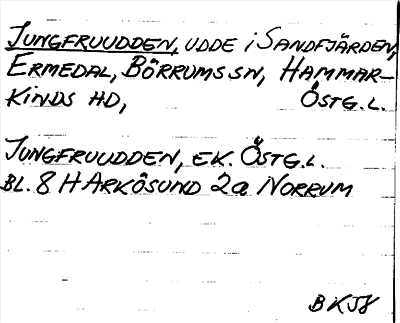 JUNGFRUUDDEN, UDDE i SANDFJÄRDEN,
ERMEDAL, BÖRRUMS SN, HAMMAR-
KINDS HD, ÖSTG.L.
JUNGFRUUDDEN, EK. ÖSTG.L.
BL. 8 H ARKÖSUND 2a NORRUM
BKJ8